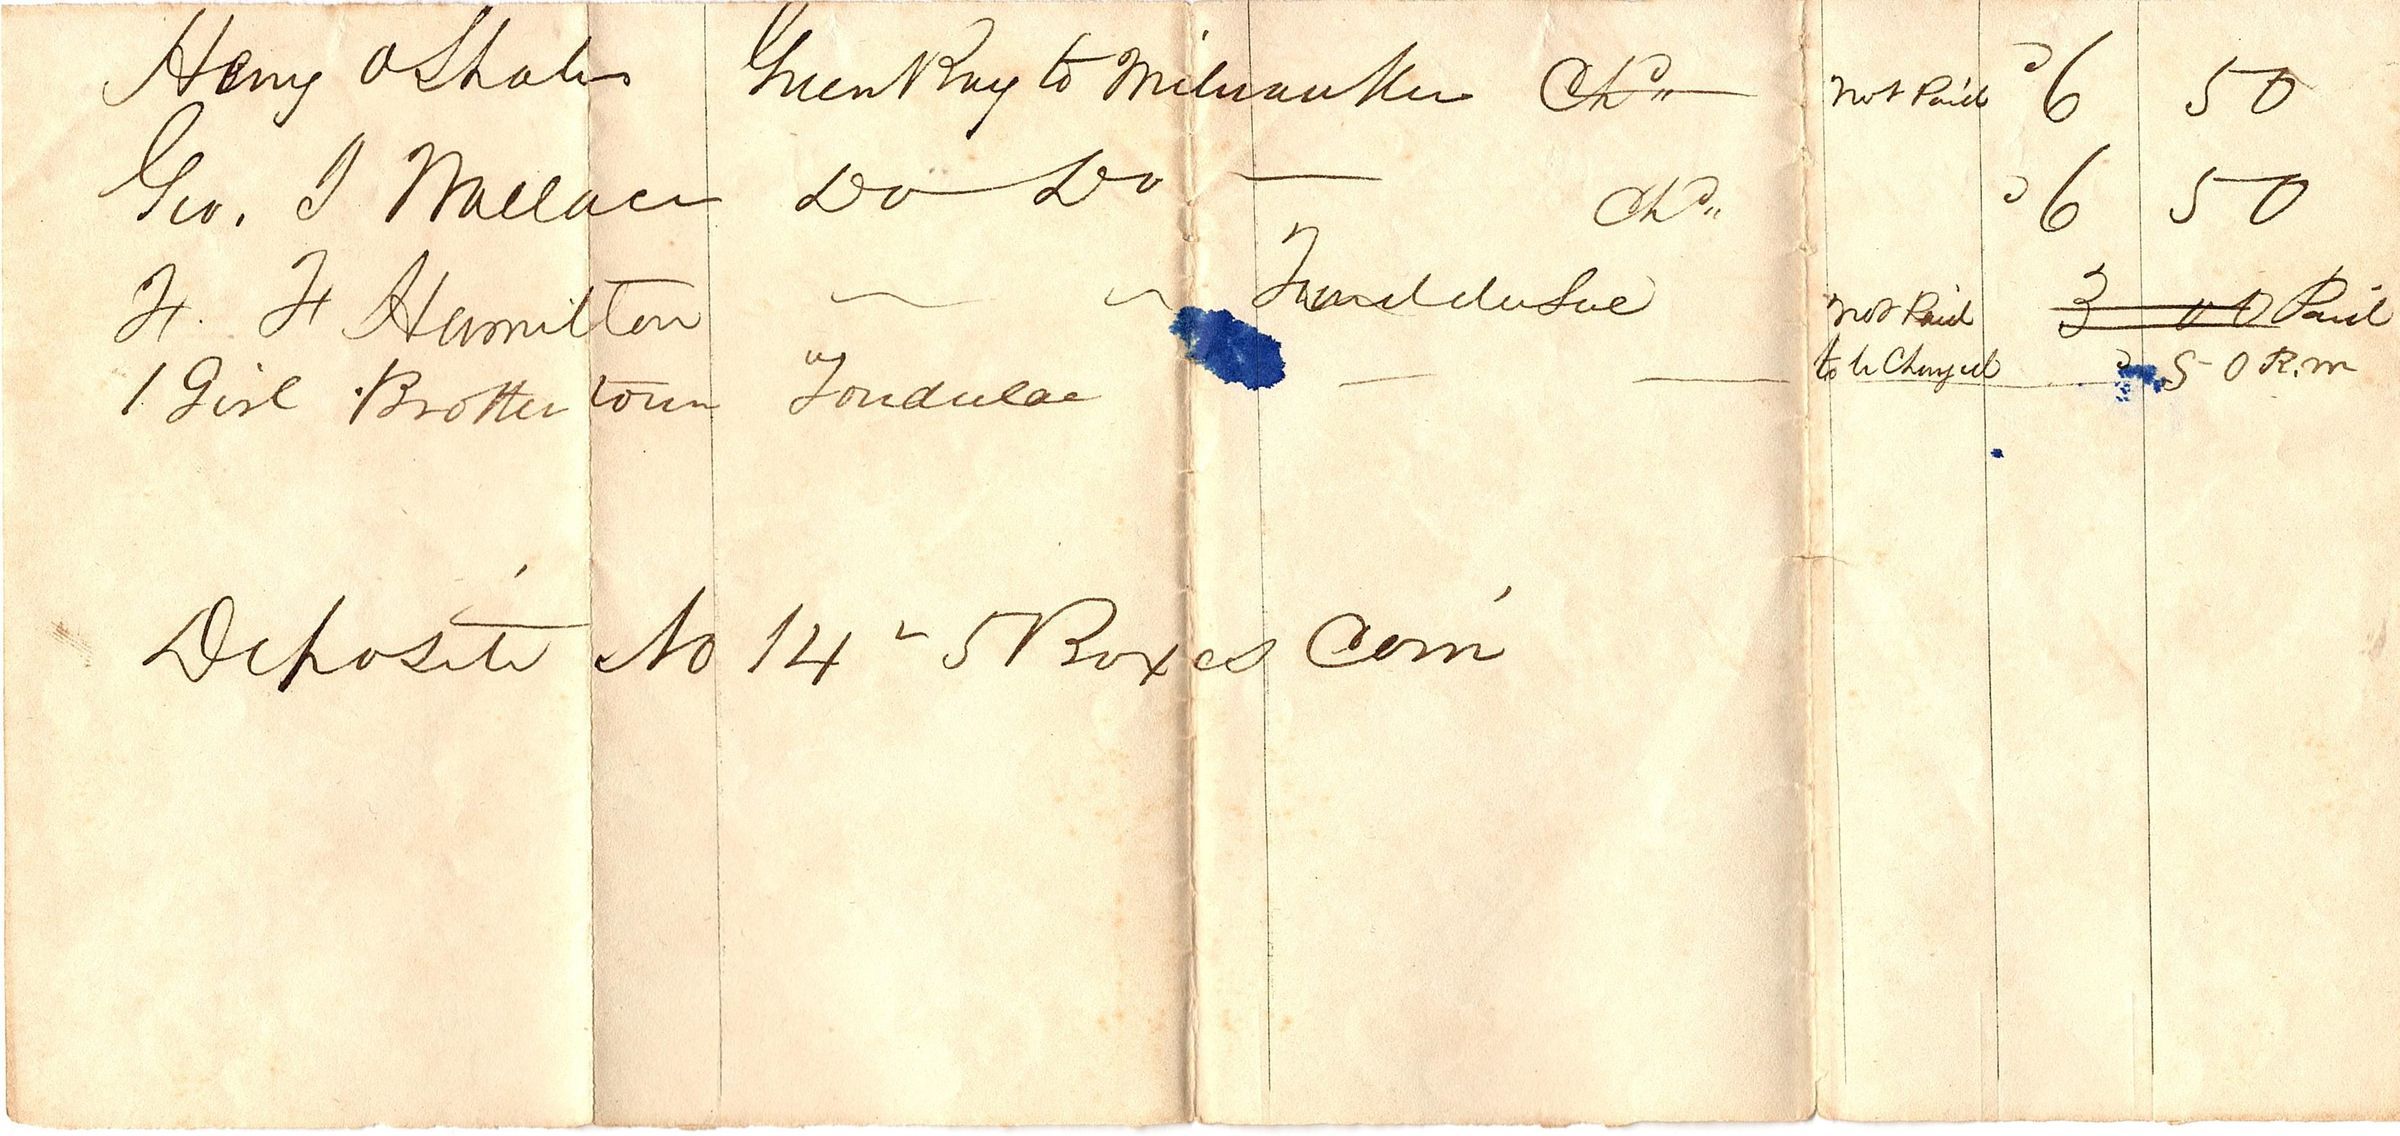 Henry O Shales Green Bay to Milwaukee Chd" Not Paid 6 50
Geo. I Wallace Do Do — Chd" 6 50
H. H Hamilton Fond du Lac Not Paid 3 00 Paid
1 Girl Brothertown "Fondulac — — to be Charged 50 R.m
Deposite No 14 - 5 Boxes Corn